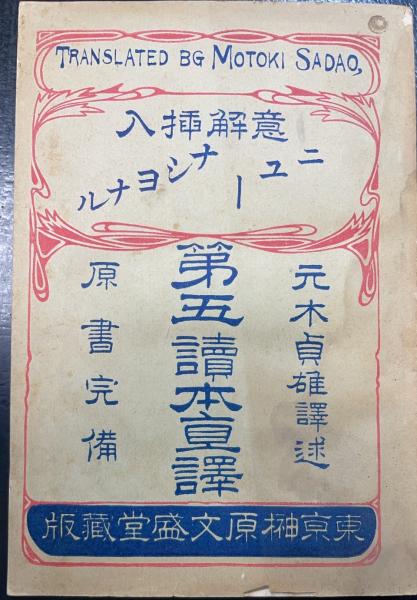 TRANSLATED BG MOTOKI SADAO,
意解挿入
ニユーナシヨナル
元木貞雄譯述
第五讀本直譯
原書完備
東京榊原文盛堂藏版